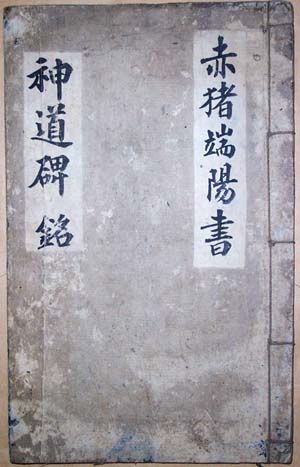 赤猪端陽書
神道碑銘